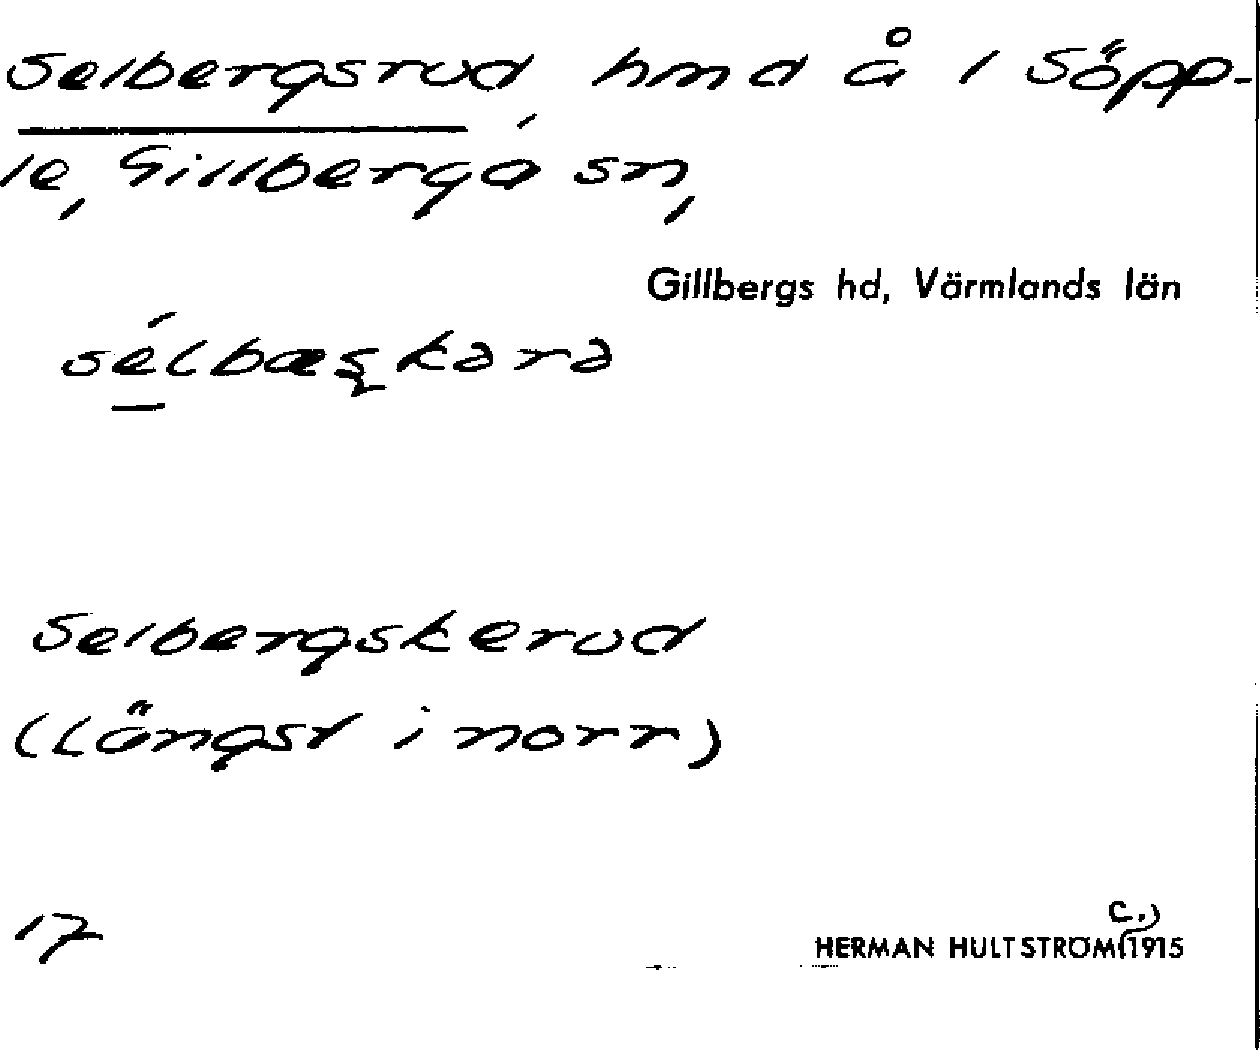 Selbergsrud, hmd å 1 Söpp-
le, Gillberga sn,
Gillbergs hd, Värmlands län
sélbæşkərə
Selbergskerud
(Längst i norr)
17
C.)
HERMAN HULTSTRÖM (1915